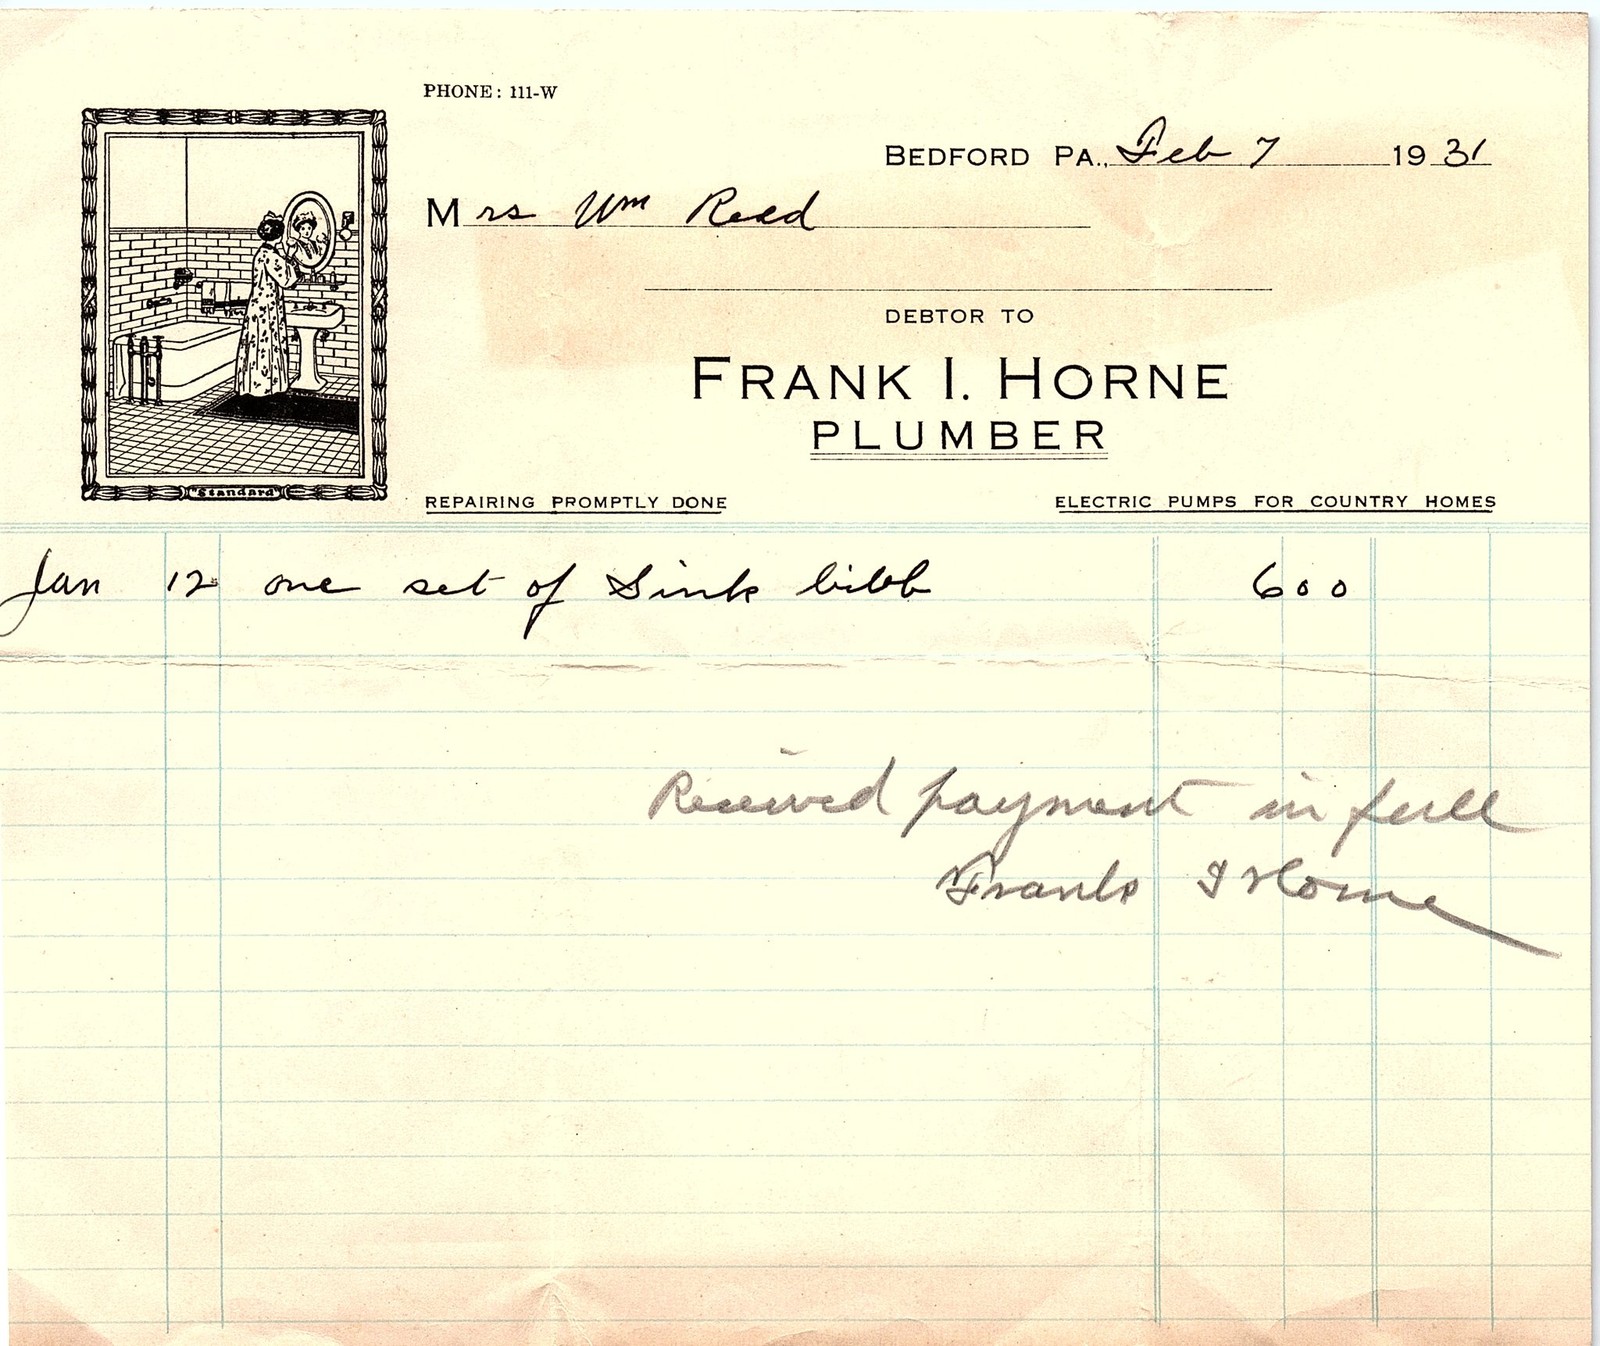 PHONE: 111-W
BEDFORD PA., Feb 7 1931
Mrs Wm Reed
DEBTOR TO
FRANK I. HORNE
PLUMBER
"Standard"
REPAIRING PROMPTLY DONE ELECTRIC PUMPS FOR COUNTRY HOMES
Jan 12 one set of Sink bibb 600
Received payment in full
Frank I Horne